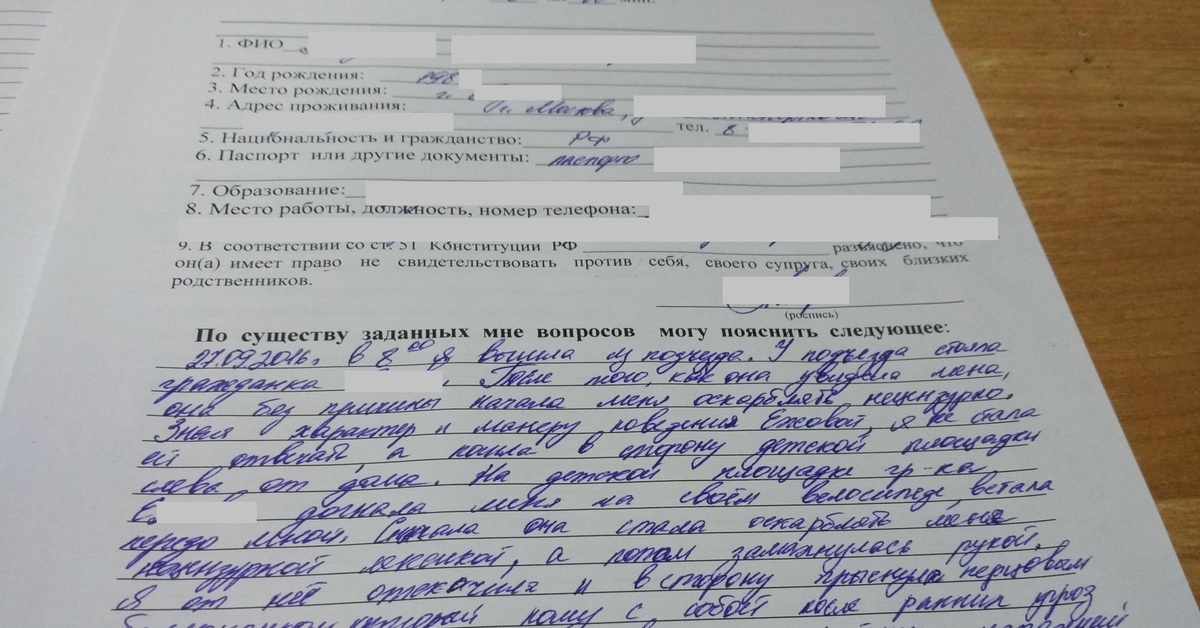 мин.
1. ФИО
2. Год рождения: 198
3. Место рождения: г.
4. Адрес проживания: г. Москва,
тел. 8
5. Национальность и гражданство: РФ
6. Паспорт или другие документы: паспорт
7. Образование:
8. Место работы, должность, номер телефона:
9. В соответствии со ст. 51 Конституции РФ разъяснено, что
он(а) имеет право не свидетельствовать против себя, своего супруга, своих близких
родственников.
(роспись)
По существу заданных мне вопросов могу пояснить следующее:
27.09.2016г. в 8 00 я вышла из подъезда. У подъезда стояла
гражданка . После того, как она увидела меня,
она без причины начала меня оскарблять нецензурно.
Зная характер и манеру поведения Ежовой, я не стала
ей отвечать, а пошла в сторону детской площадки
слева от дома. На детской площадке гр-ка
Е догнала меня на своём велосипеде, встала
передо мной. Сначала она стала оскарблять меня
нецензурной лексикой, а потом замахнулась рукой.
Я от неё отскочила и в сторону прыснула перцовым
который ношу с собой после ранних угроз